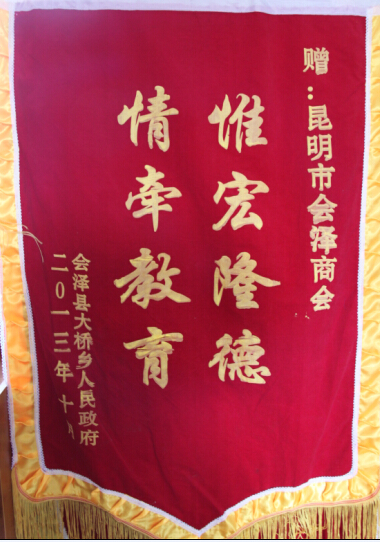 赠：昆明市会泽商会
惟宏隆德
情牵教育
会泽县大桥乡人民政府
二〇一三年十月